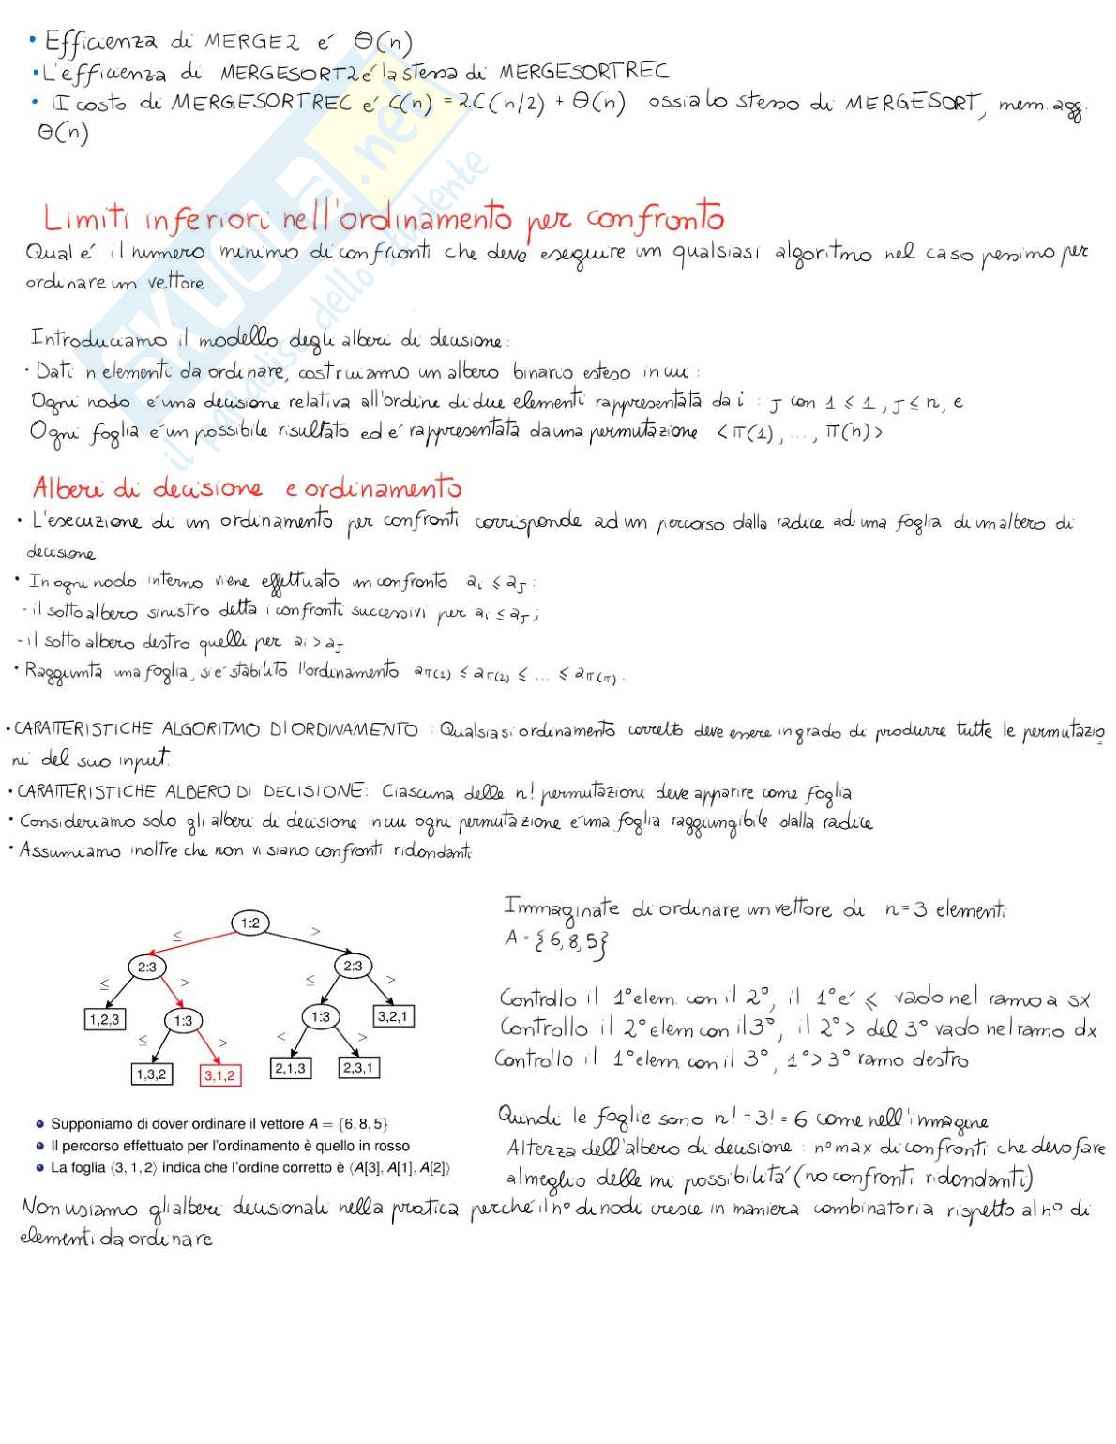 • Efficienza di MERGE2 é Θ(n)
• L'efficienza di MERGESORT2 é la stessa di MERGESORTREC
• I costo di MERGESORTREC é C(n) = 2C(n/2) + Θ(n) ossia lo stesso di MERGESORT, mem. agg.
Θ(n)
Limiti inferiori nell'ordinamento per confronto
Qual é il numero minimo di confronti che deve eseguire un qualsiasi algoritmo nel caso pessimo per
ordinare un vettore
Introduciamo il modello degli alberi di decisione:
• Dati n elementi da ordinare, costruiamo un albero binario esteso in cui:
Ogni nodo é una decisione relativa all'ordine di due elementi rappresentata da i : J con 1 ≤ 1, J ≤ n, e
Ogni foglia é un possibile risultato ed é rappresentata da una permutazione <π(1), ..., π(n)>
Alberi di decisione e ordinamento
• L'esecuzione di un ordinamento per confronti corrisponde ad un percorso dalla radice ad una foglia di un albero di
decisione
• In ogni nodo interno viene effettuato un confronto ai ≤ aJ:
- il sottoalbero sinistro detta i confronti successivi per ai ≤ aJ;
- il sotto albero destro quelli per ai > aJ
• Raggiunta una foglia, si é stabilito l'ordinamento aπ(1) ≤ aπ(2) ≤ ... ≤ aπ(n).
• CARATTERISTICHE ALGORITMO DI ORDINAMENTO : Qualsiasi ordinamento corretto deve essere in grado di produrre tutte le permutazio
ni del suo input.
• CARATTERISTICHE ALBERO DI DECISIONE: Ciascuna delle n! permutazioni deve apparire come foglia
• Consideriamo solo gli alberi di decisione in cui ogni permutazione é una foglia raggiungibile dalla radice
• Assumiamo inoltre che non vi siano confronti ridondanti
1:2
≤ >
2:3 2:3
≤ > ≤ >
1,2,3 1:3 1:3 3,2,1
≤ > < >
1,3,2 3,1,2 2,1,3 2,3,1
Immaginate di ordinare un vettore di n=3 elementi
A = {6,8,5}
Controllo il 1° elem. con il 2°, il 1° é ≤ vado nel ramo a sx
Controllo il 2° elem con il 3°, il 2° > del 3° vado nel ramo dx
Controllo il 1° elem. con il 3°, 1° > 3° ramo destro
• Supponiamo di dover ordinare il vettore A = {6, 8, 5}
• Il percorso effettuato per l'ordinamento è quello in rosso
• La foglia ⟨3, 1, 2⟩ indica che l'ordine corretto è ⟨A[3], A[1], A[2]⟩
Quindi le foglie sono n! = 3! = 6 come nell'immagine
Altezza dell'albero di decisione : n° max di confronti che devo fare
al meglio delle mi possibilitá (no confronti ridondanti)
Non usiamo gli alberi decisionali nella pratica perché il n° di nodi cresce in maniera combinatoria rispetto al n° di
elementi da ordinare
SKUOLA.net
il paradiso dello studente